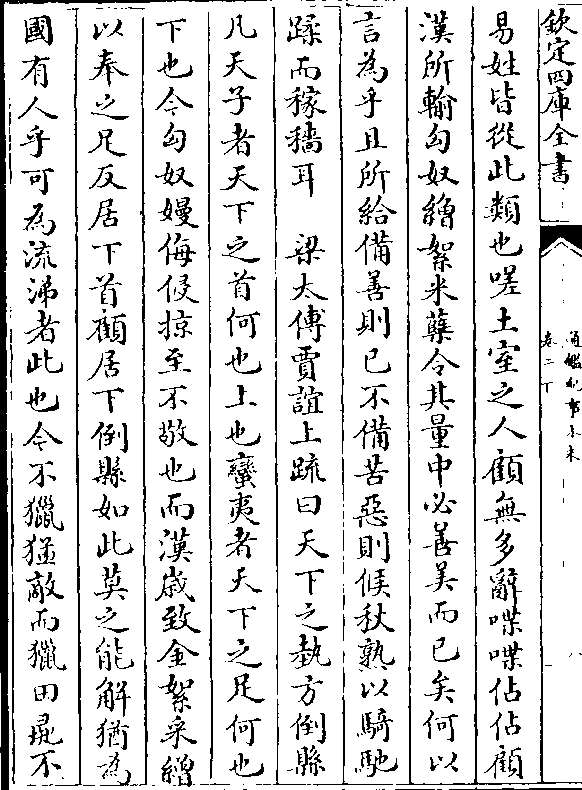 欽定四庫全書
通鑑紀事本末
卷二下
易姓皆從此類也嗟土室之人顧無多辭喋喋佔佔顧
漢所輸匈奴繒絮米糵令其量中必善美而已矣何以
言為乎且所給備善則已不備苦惡則候秋孰以騎馳
蹂而稼穡耳　梁太傅賈誼上疏曰天下之埶方倒縣
凡天子者天下之首何也上也蠻夷者天下之足何也
下也今匈奴嫚侮侵掠至不敬也而漢歲致金絮采繒
以奉之足反居下首顧居下倒縣如此莫之能解猶為
國有人乎可為流涕者此也今不獵猛敵而獵田彘不